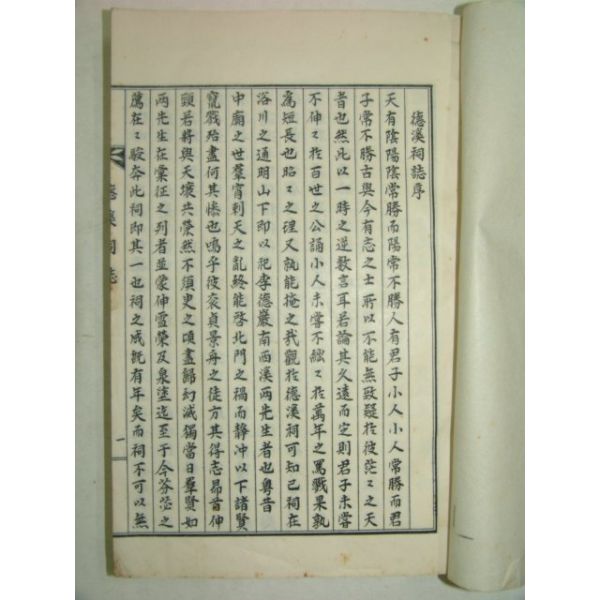 德溪祠誌序
天有陰陽陰常勝而陽常不勝人有君子小人小人常勝而君
子常不勝古與今有志之士所以不能無致疑於彼茫〻之天
者也然此以一時之逆數言耳若論其久遠而定則君子未嘗
不伸〻於百世之公誦小人未嘗不絀〻於萬年之罵戮果孰
爲短長也昭〻之理又孰能掩之哉觀於德溪祠可知已祠在
浴川之通明山下卽以祀李德巖南西溪兩先生者也粤昔
中廟之世羣宵剌天之亂終能啓北門之禍而静冲以下諸賢
竄戮殆盡何其慘也嗚乎彼袞貞景舟之徒方其得志昂首伸
頸若將與天壤共榮然不須臾之頃盡歸幻滅獨當日羣賢如
兩先生在彙征之列者並蒙伸雪榮及泉塗迄至于今芬苾之
薦在〻駿奔此祠卽其一也祠之成旣有年矣而祠不可以無
德溪祠誌
一